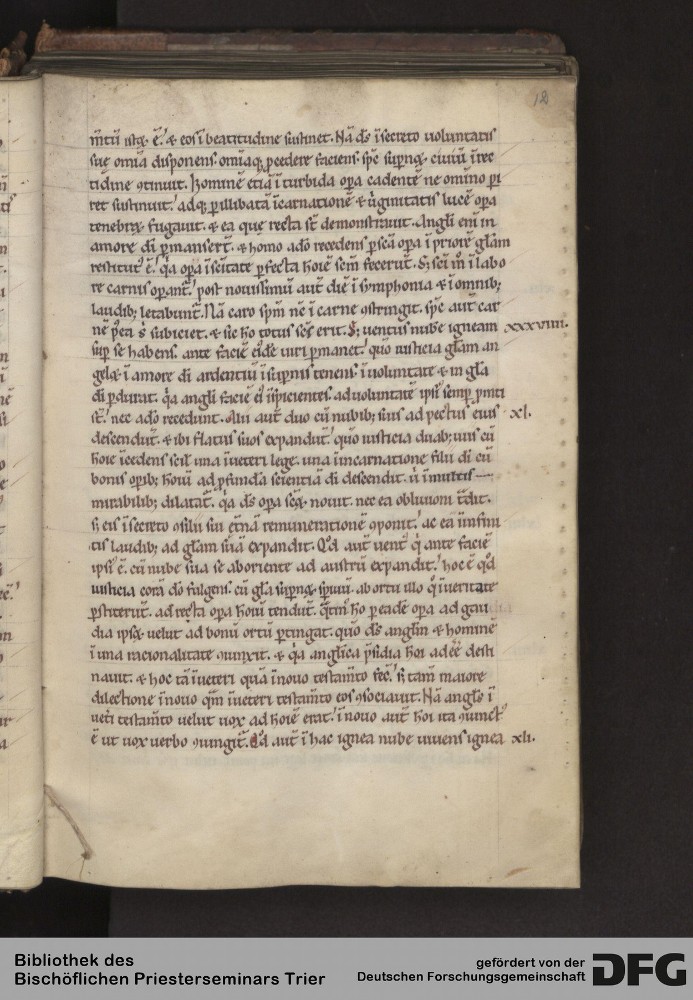 18
m̄tū istę ē. & eos ī beatitudine sustinet. Nā ds̄ ī secreto uoluntatis
suę omīa disponens. omīaq; pcedere faciens. spc̄ supnoꝝ ciuiū ī rec
titudine ꝯtinuit. Hominē etiā ī turbida opa cadentē ne omīno pi
ret sustinuit. adq; p illibatā īcarnationē & ūginitatis lucē opa
tenebraꝝ fugauit. & ea quę recta st̄ demonstrauit. Angli enī in
amore dī pmansert̄. & homo ad dō recedens p scā opa ī priorē glām
restitut' ē. q̄a opa ī sc̄itate pfecta hoīe sēm fecerūt. S; sc̄i m̊ ī labo
re carnis opant̄. post nouissimū aut̄ diē ī symphonia & ī omnib;
laudib; letabunt̄. Nā caro spm̄ nē ī carne ꝯstringit. spc̄ aut̄ car
nē pea s̄ subiciet. & sic hō totus scs̄ erit. Sꝫ uentus nubē igneam xxxviiii.
sup se habens. ante faciē eidē uiri pmanet. quō iusticia glām an
gelicā ī amore dī ardentiū ī supnis tenens. ī uoluntate & in glā
dī pdurat. q̄a angli faciē eī īspicientes. ad uoluntatē ipsī semp pmti
st̄. nec a dō recedunt. Alii aut̄ duo cū nubib; suis ad pectus eius xl.
descendunt̄. & ibi flatus suos expandūt. quō iusticia duab; uiis cū
hoīe īcedens scil̄ una ī ueteri lege. una ī incarnatione filii dī cū
bonis opib; hoīū ad pfundā scientiā dī descendit. ū ī multis
mirabilib; dilatat̄. q̄a ds̄ opa scoꝝ nouit. nec ea obliuioni t̄dit.
s; eis ī secreto ꝯsilii sui et̄nā remunerationē ꝯponit. ac ea ī infini
tis laudib; ad glām suā expandit. Qd̄ aut̄ uent' q̄ ante faciē
ipsī ē. cū nube sua se ab oriente ad austrū expandit. hoc ē qd̄
iusticia corā dō fulgens. cū glā supnoꝝ spirituū. ab ortu illo q̄ ī ueritate
pstiterūt. ad recta opa hoīū tendit. q̄tin' hō p eadē opa ad gau
dia ipsoꝝ uelut ad bonū ortū ptingat. quō ds̄ anglm̄ & hominē
ī una racionalitate ꝯiunxit. & q̄a anglica psidia hoī adeē desti
nauit. & hoc tā ī ueteri quā ī nouo testam̄to fec̄. s; tam̄ maiore
dilectione ī nouo qm̄ ī ueteri testam̄to eos ꝯsociauit. Nā angls̄ ī
uet̄i testam̄to uelut uox ad hoīē erat. ī nouo aut̄ hoī ita ꝯiunct'
ē ut uox uerbo ꝯiungit̄. Qd̄ aut̄ ī hac ignea nube uiuens ignea xli.
Bibliothek des
Bischöflichen Priesterseminars Trier
gefördert von der
Deutschen Forschungsgemeinschaft
DFG